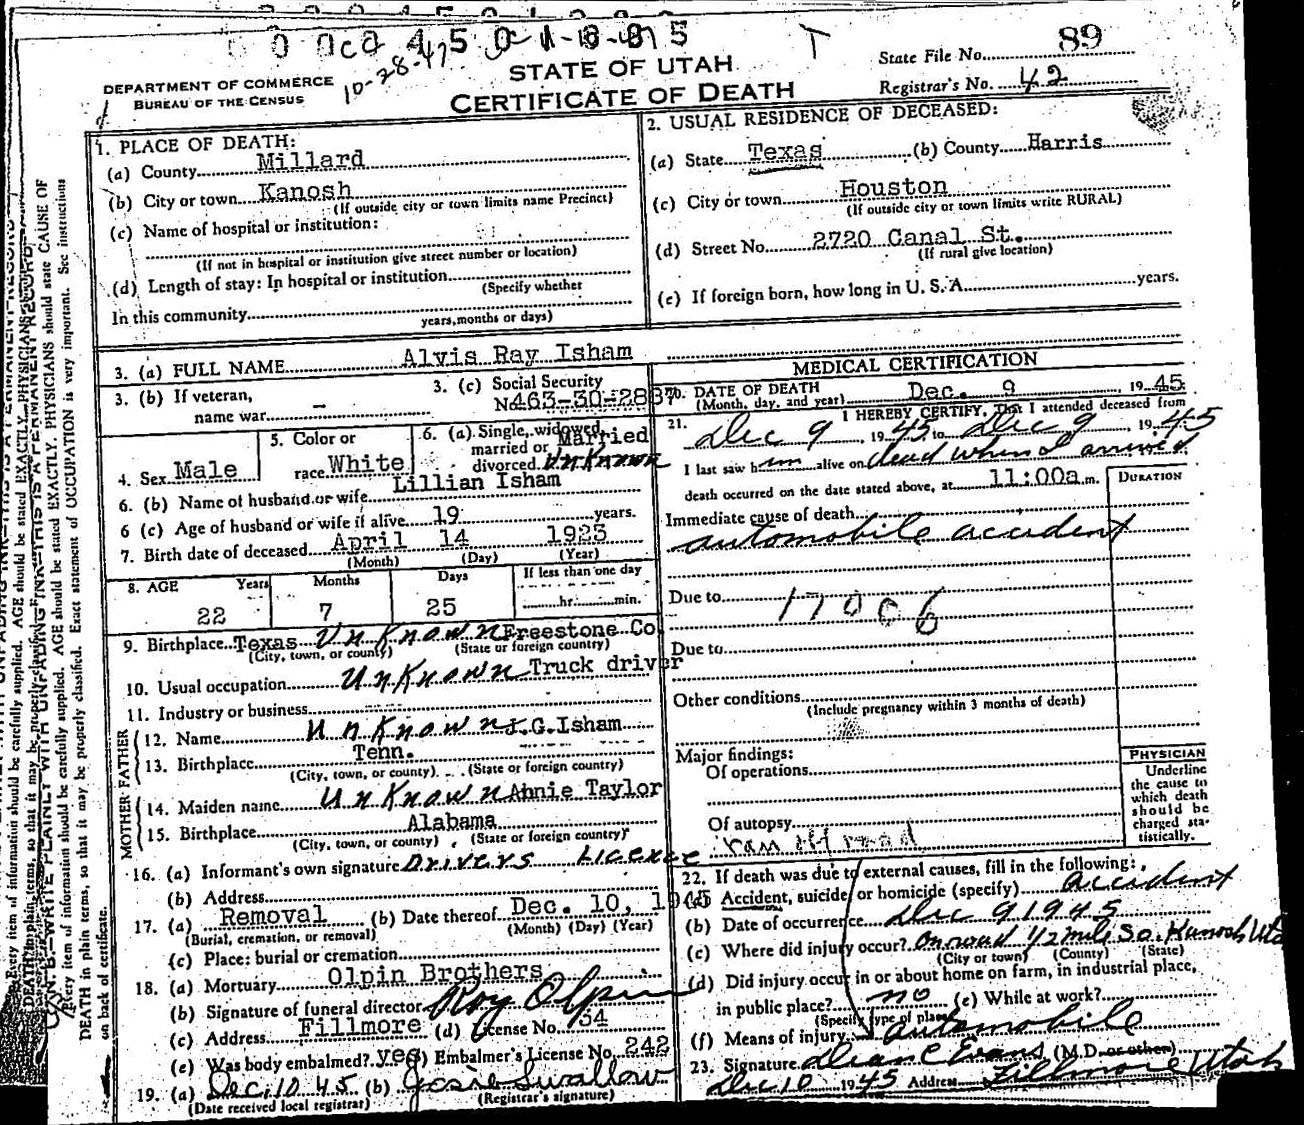 DEPARTMENT OF COMMERCE
BUREAU OF THE CENSUS
10-28-47
STATE OF UTAH
CERTIFICATE OF DEATH
State File No. 89
Registrar's No. 42
1. PLACE OF DEATH:
(a) County Millard
(b) City or town Kanosh
(If outside city or town limits name Precinct)
(c) Name of hospital or institution:
(If not in hospital or institution give street number or location)
(d) Length of stay: In hospital or institution
(Specify whether
In this community
years, months or days)
2. USUAL RESIDENCE OF DECEASED:
(a) State Texas (b) County Harris
(c) City or town Houston
(If outside city or town limits write RURAL)
(d) Street No. 2720 Canal St.
(If rural give location)
(e) If foreign born, how long in U. S. A. years.
3. (a) FULL NAME Alvis Ray Isham
3. (b) If veteran,
name war –
3. (c) Social Security
No. 463-30-2887
4. Sex Male
5. Color or
race White
6. (a) Single, widowed,
married or Married
divorced Unknown
6. (b) Name of husband or wife Lillian Isham
6 (c) Age of husband or wife if alive 19 years.
7. Birth date of deceased April 14 1923
(Month) (Day) (Year)
8. AGE Years Months Days If less than one day
22 7 25 hr. min.
9. Birthplace Texas Unknown Freestone Co
(City, town, or county) (State or foreign country)
10. Usual occupation Unknown Truck driver
11. Industry or business
FATHER
12. Name Unknown J.G. Isham
13. Birthplace Tenn.
(City, town, or county) (State or foreign country)
MOTHER
14. Maiden name Unknown Annie Taylor
15. Birthplace Alabama
(City, town, or county) (State or foreign country)
16. (a) Informant's own signature Drivers Licence
(b) Address
17. (a) Removal (b) Date thereof Dec. 10, 1945
(Burial, cremation, or removal) (Month) (Day) (Year)
(c) Place: burial or cremation
18. (a) Mortuary Olpin Brothers
(b) Signature of funeral director Roy Olpin
(c) Address Fillmore (d) License No. 54
(e) Was body embalmed? yes Embalmer's License No. 242
19. (a) Dec. 10 45 (b) Josie Swallow
(Date received local registrar) (Registrar's signature)
MEDICAL CERTIFICATION
20. DATE OF DEATH Dec. 9, 1945
(Month, day, and year)
21. I HEREBY CERTIFY, That I attended deceased from
Dec 9, 1945 to Dec 9, 1945
I last saw him alive on dead when I arrived
death occurred on the date stated above, at 11:00a.m.
DURATION
Immediate cause of death
automobile accident
Due to 17006
Due to
Other conditions
(Include pregnancy within 3 months of death)
Major findings:
Of operations
Of autopsy
ran off road
PHYSICIAN
Underline
the cause to
which death
should be
charged sta-
tistically.
22. If death was due to external causes, fill in the following:
(a) Accident, suicide or homicide (specify) accident
(b) Date of occurrence Dec 9 1945
(c) Where did injury occur? On road 1/2 mile So. Kanosh Utah
(City or town) (County) (State)
(d) Did injury occur in or about home on farm, in industrial place,
in public place? no (e) While at work?
(Specify type of place)
(f) Means of injury automobile
23. Signature Dean C Evans (M.D. or other)
Dec 10 1945 Address Fillmore Utah
DEATH in plain terms, so that it may be properly classified. Exact statement of OCCUPATION is very important. See instructions
on back of certificate.